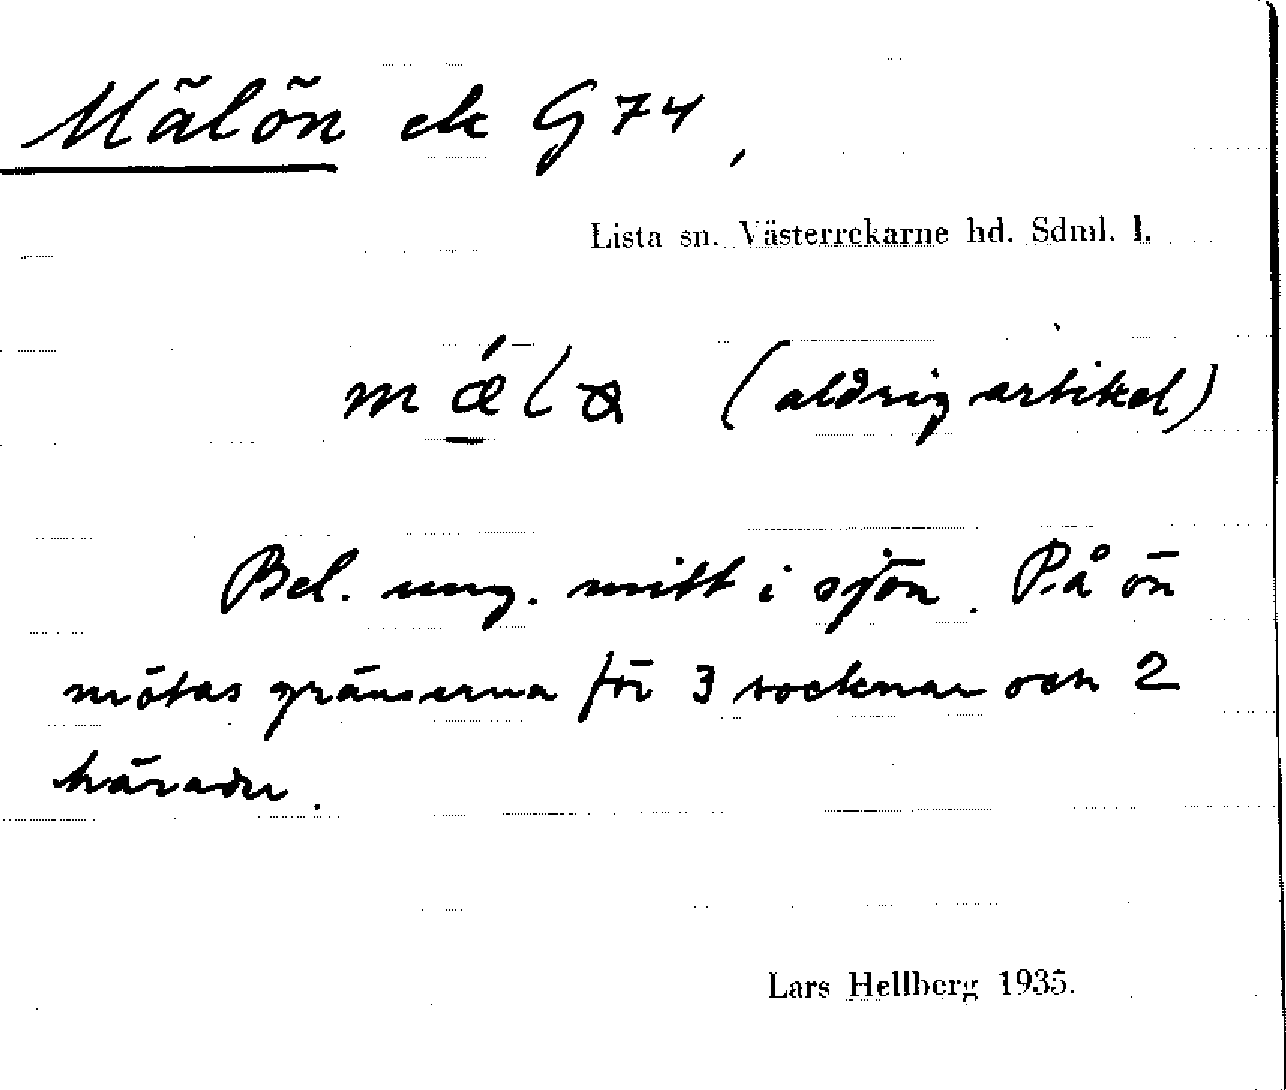 Mälön ek G 74,
Lista sn. Västerrekarne hd. Sdml. l.
(aldrig artikel)
Bel. ung. mitt i sjön. På ön
mötas gränserna för 3 socknar och 2
härader.
Lars Hellberg 1935.